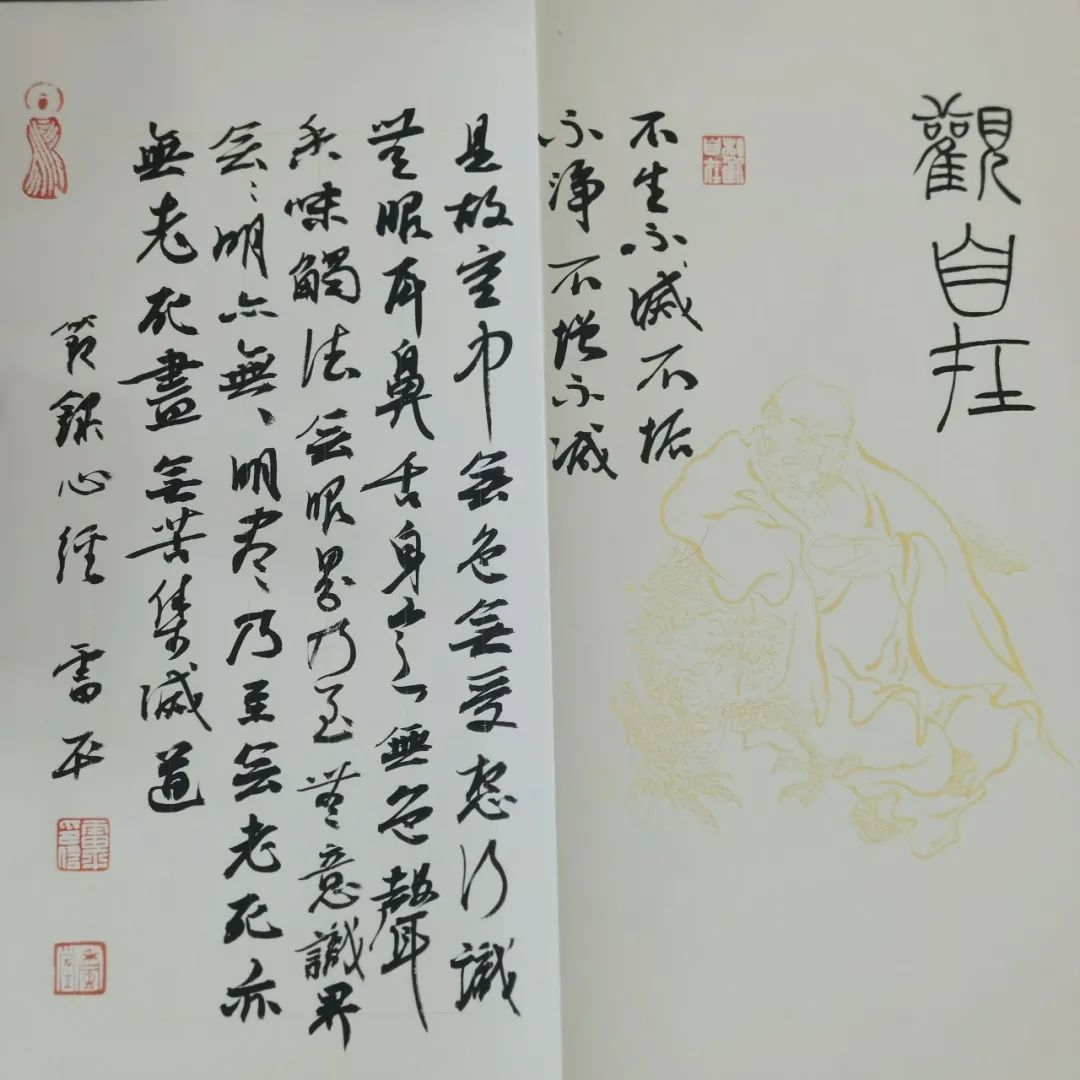 觀自在
不生不滅不垢
不淨不增不減
是故空中無色無受想行識
無眼耳鼻舌身意無色聲
香味觸法無眼界乃至無意識界
無〻明亦無〻明盡乃至無老死亦
無老死盡無苦集滅道
節錄心經 雷平